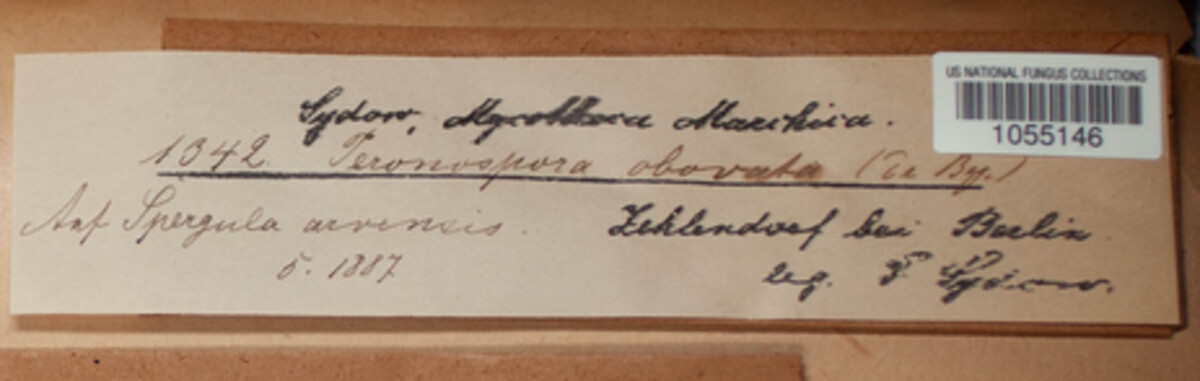 US NATIONAL FUNGUS COLLECTIONS
1055146
Sydow, Mycotheca Marchica.
1342. Peronospora obovata (de By.)
Auf Spergula arvensis.
5. 1887
Zehlendorf bei Berlin
leg. P Sydow.